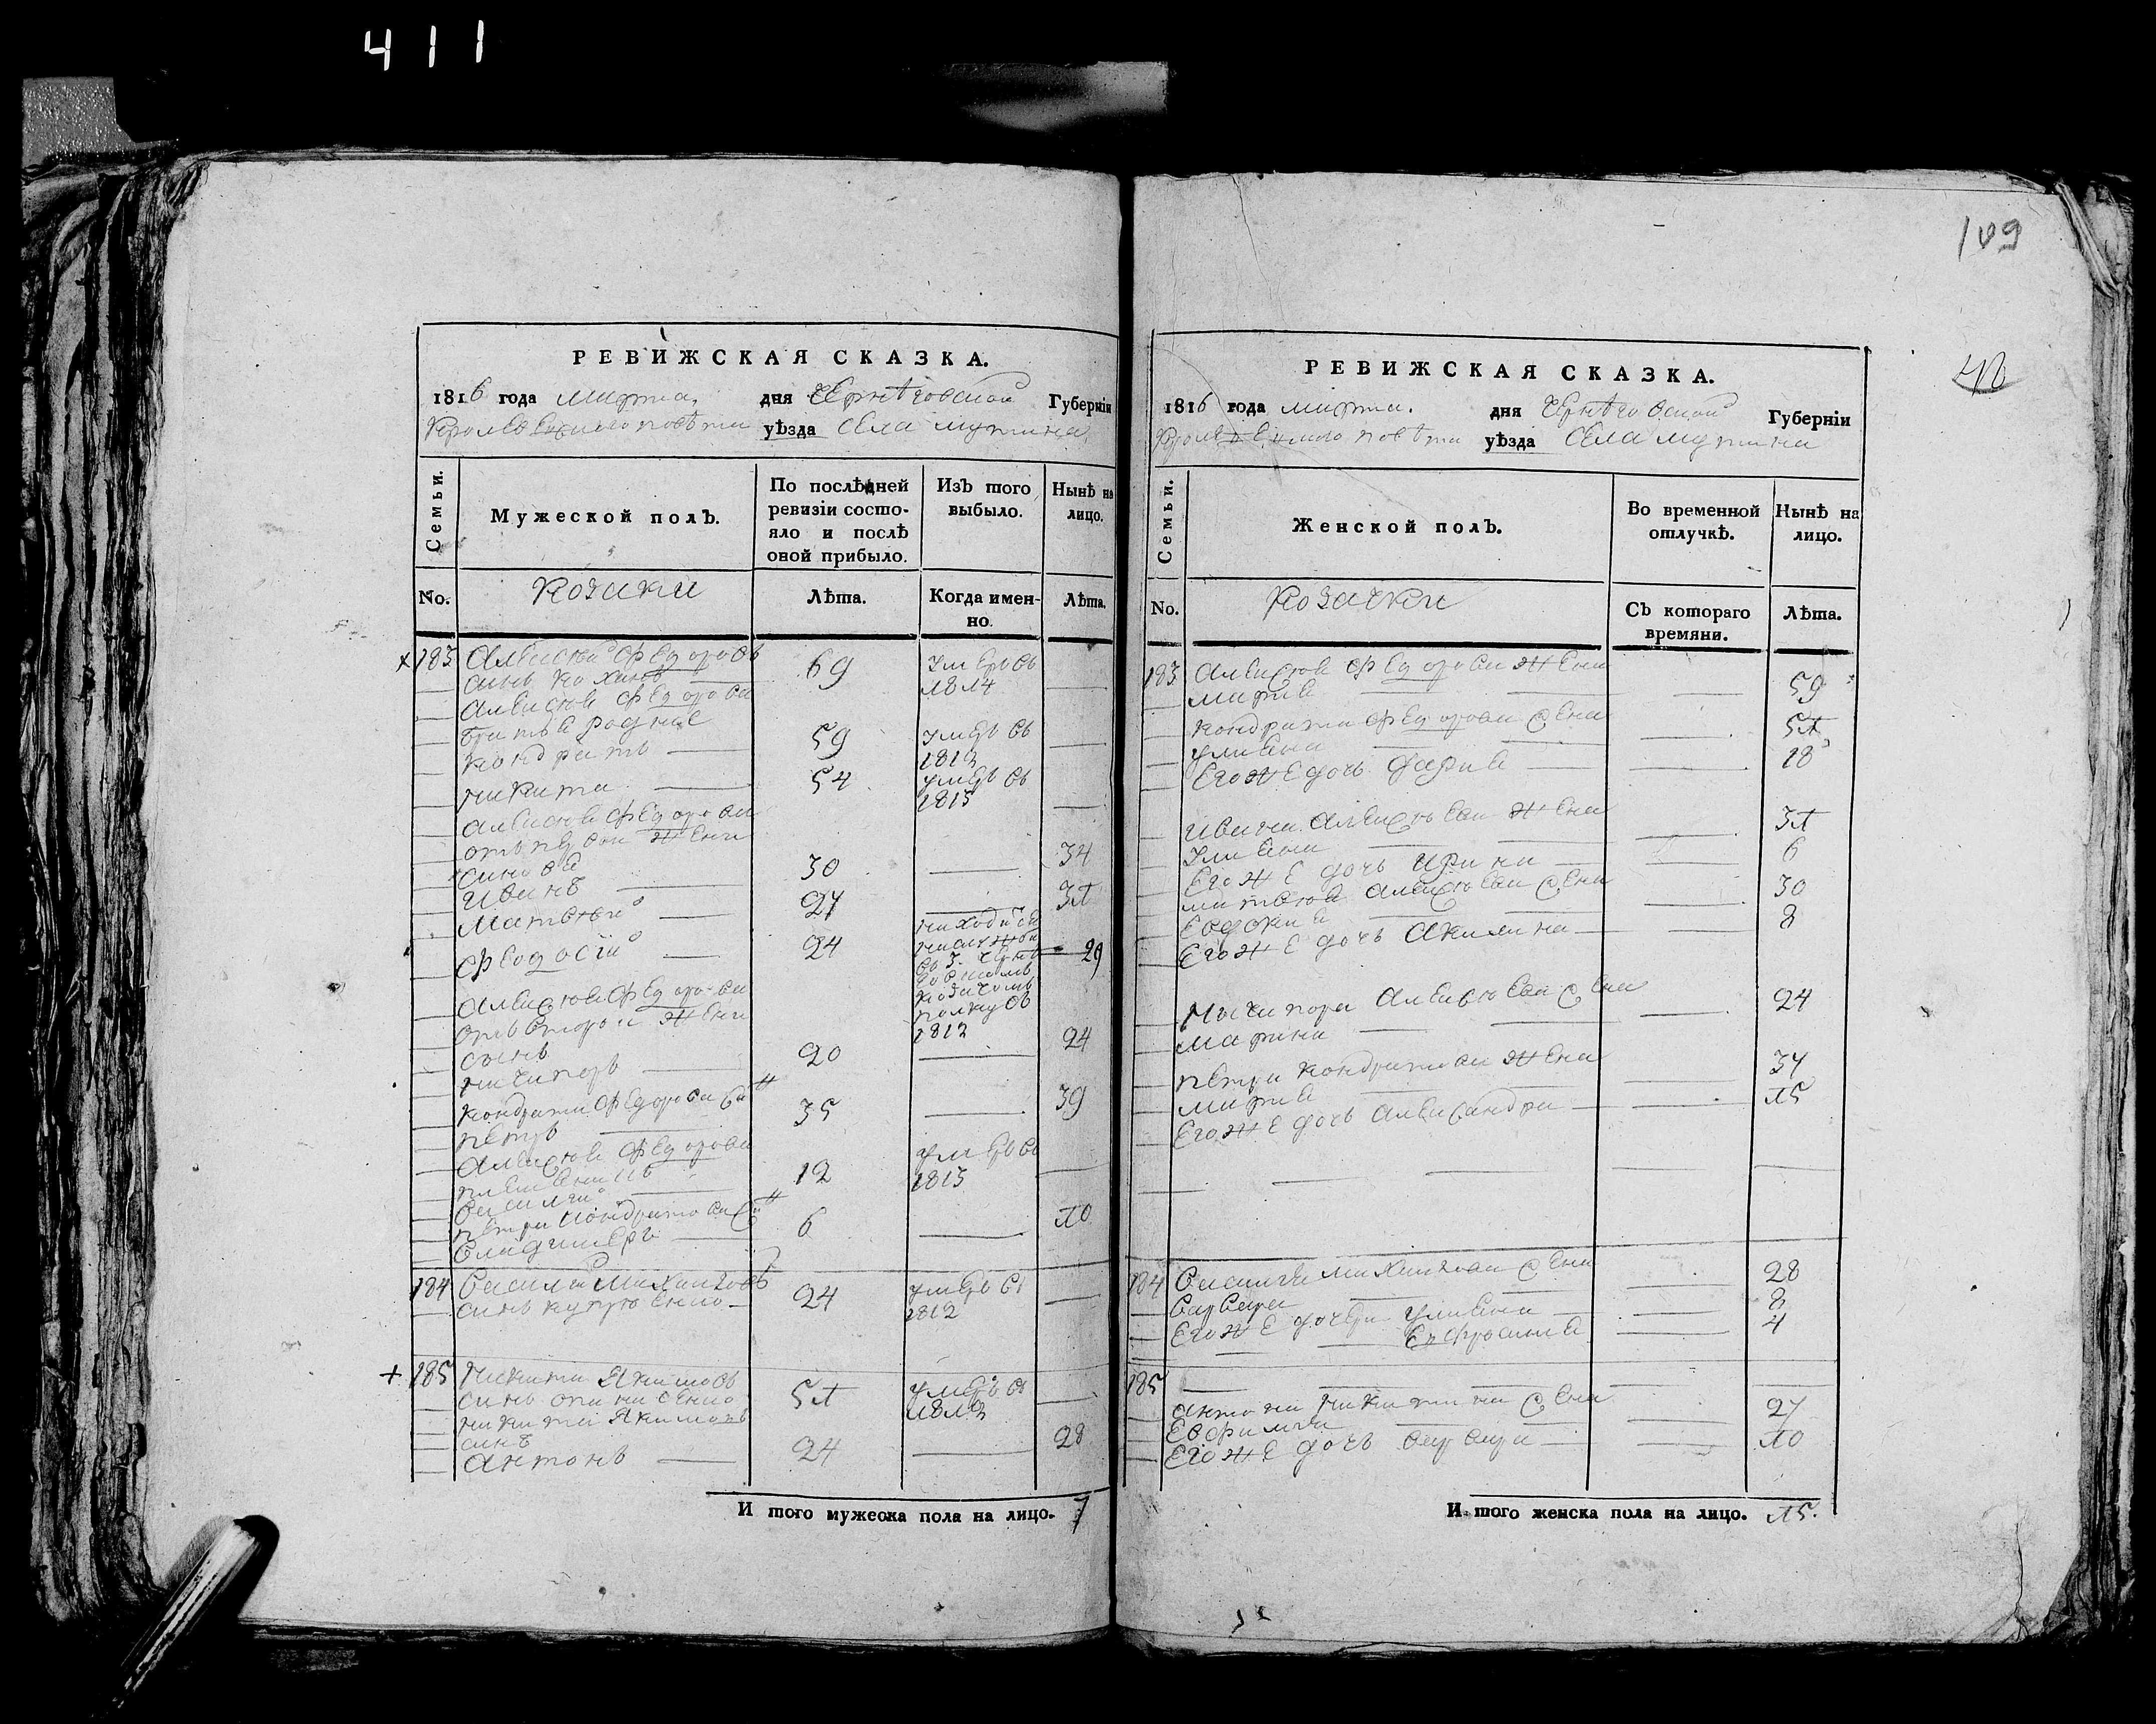 411
РЕВИЖСКАЯ СКАЗКА.
1816 года марта дня Чернѣговской Губерніи
Кролевецкого повѣта уѣзда Села Мутина
Семьи.
Мужеской полъ.
По послѣдней ревизіи состояло и послѣ оной прибыло.
Изъ того выбыло.
Нынѣ на лицо.
No.
Козаки
Лѣта.
Когда именно.
Лѣта.
183 Алексѣй Федоровъ 69 умеръ въ
синъ 1814
Алексѣя Федорова
братья родніе
Кондратъ 59 умеръ въ 1812
Никита 54 умеръ въ 1815
Алексѣя Федорова
отъ первой жени
синовя
Иванъ 30 34
Матвѣй 27 31
Феодосій 24 находится 29
въ
козачомъ
полку въ
1812
Алексѣя Федорова
отъ второй жени
сынъ
Ничипоръ 20 24
Кондрата Федорова синъ
Петръ 35 39
Алексѣя Федорова умеръ въ
племеникъ 12 1813
Василій
Петра Кондратова синъ
Владимеръ 6 10
184 Василій Михайловъ 24 умеръ въ
синъ 1812
185 Никита Якимовъ 51 умеръ въ
синъ 1812
Никити Якимова
синъ
Антонъ 24 28
И того мужеска пола на лицо. 7
109
РЕВИЖСКАЯ СКАЗКА.
1816 года марта. дня Чернѣговской Губерніи
Кролевецкого повѣта уѣзда Села Мутина
Семьи.
Женской полъ.
Во временной отлучкѣ.
Нынѣ на лицо.
No.
Козачки
Съ котораго времяни.
Лѣта.
183 Алексѣя Федорова жена
Марія 59
Кондрата Федорова жена
Улияна 51
Его же дочь Дарія 18
Ивана Алексѣева жена
Улияна 31
Его же дочь Ирина 6
Матвѣя Алексѣева жена
Евдокия 30
Его же дочь Акилина 8
Ничипора Алексѣева жена
Марина 24
Петра Кондратова жена
Марія 34
Его же дочь Александра 15
184 Василия Михайлова жена
Варвара 28
Его же дочери Улияна 8
Ефросиния 4
185
Антона Никитина жена
Евфимия 27
Его же дочь Варвара 10
И того женска пола на лицо. 15.